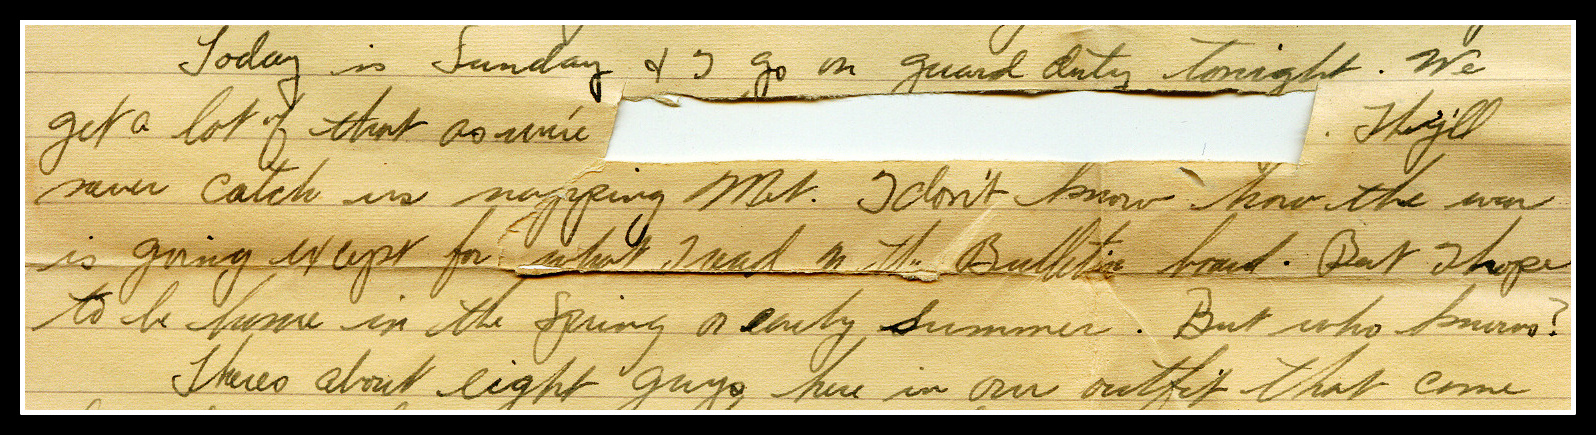 Today is Sunday & I go on guard duty tonight. We
get a lot of that as we're . They'll
never catch us napping Met. I don't know how the war
is going except for what I read on the Bulletin board. But I hope
to be home in the Spring or early Summer. But who knows?
Theres about eight guys here in our outfit that come